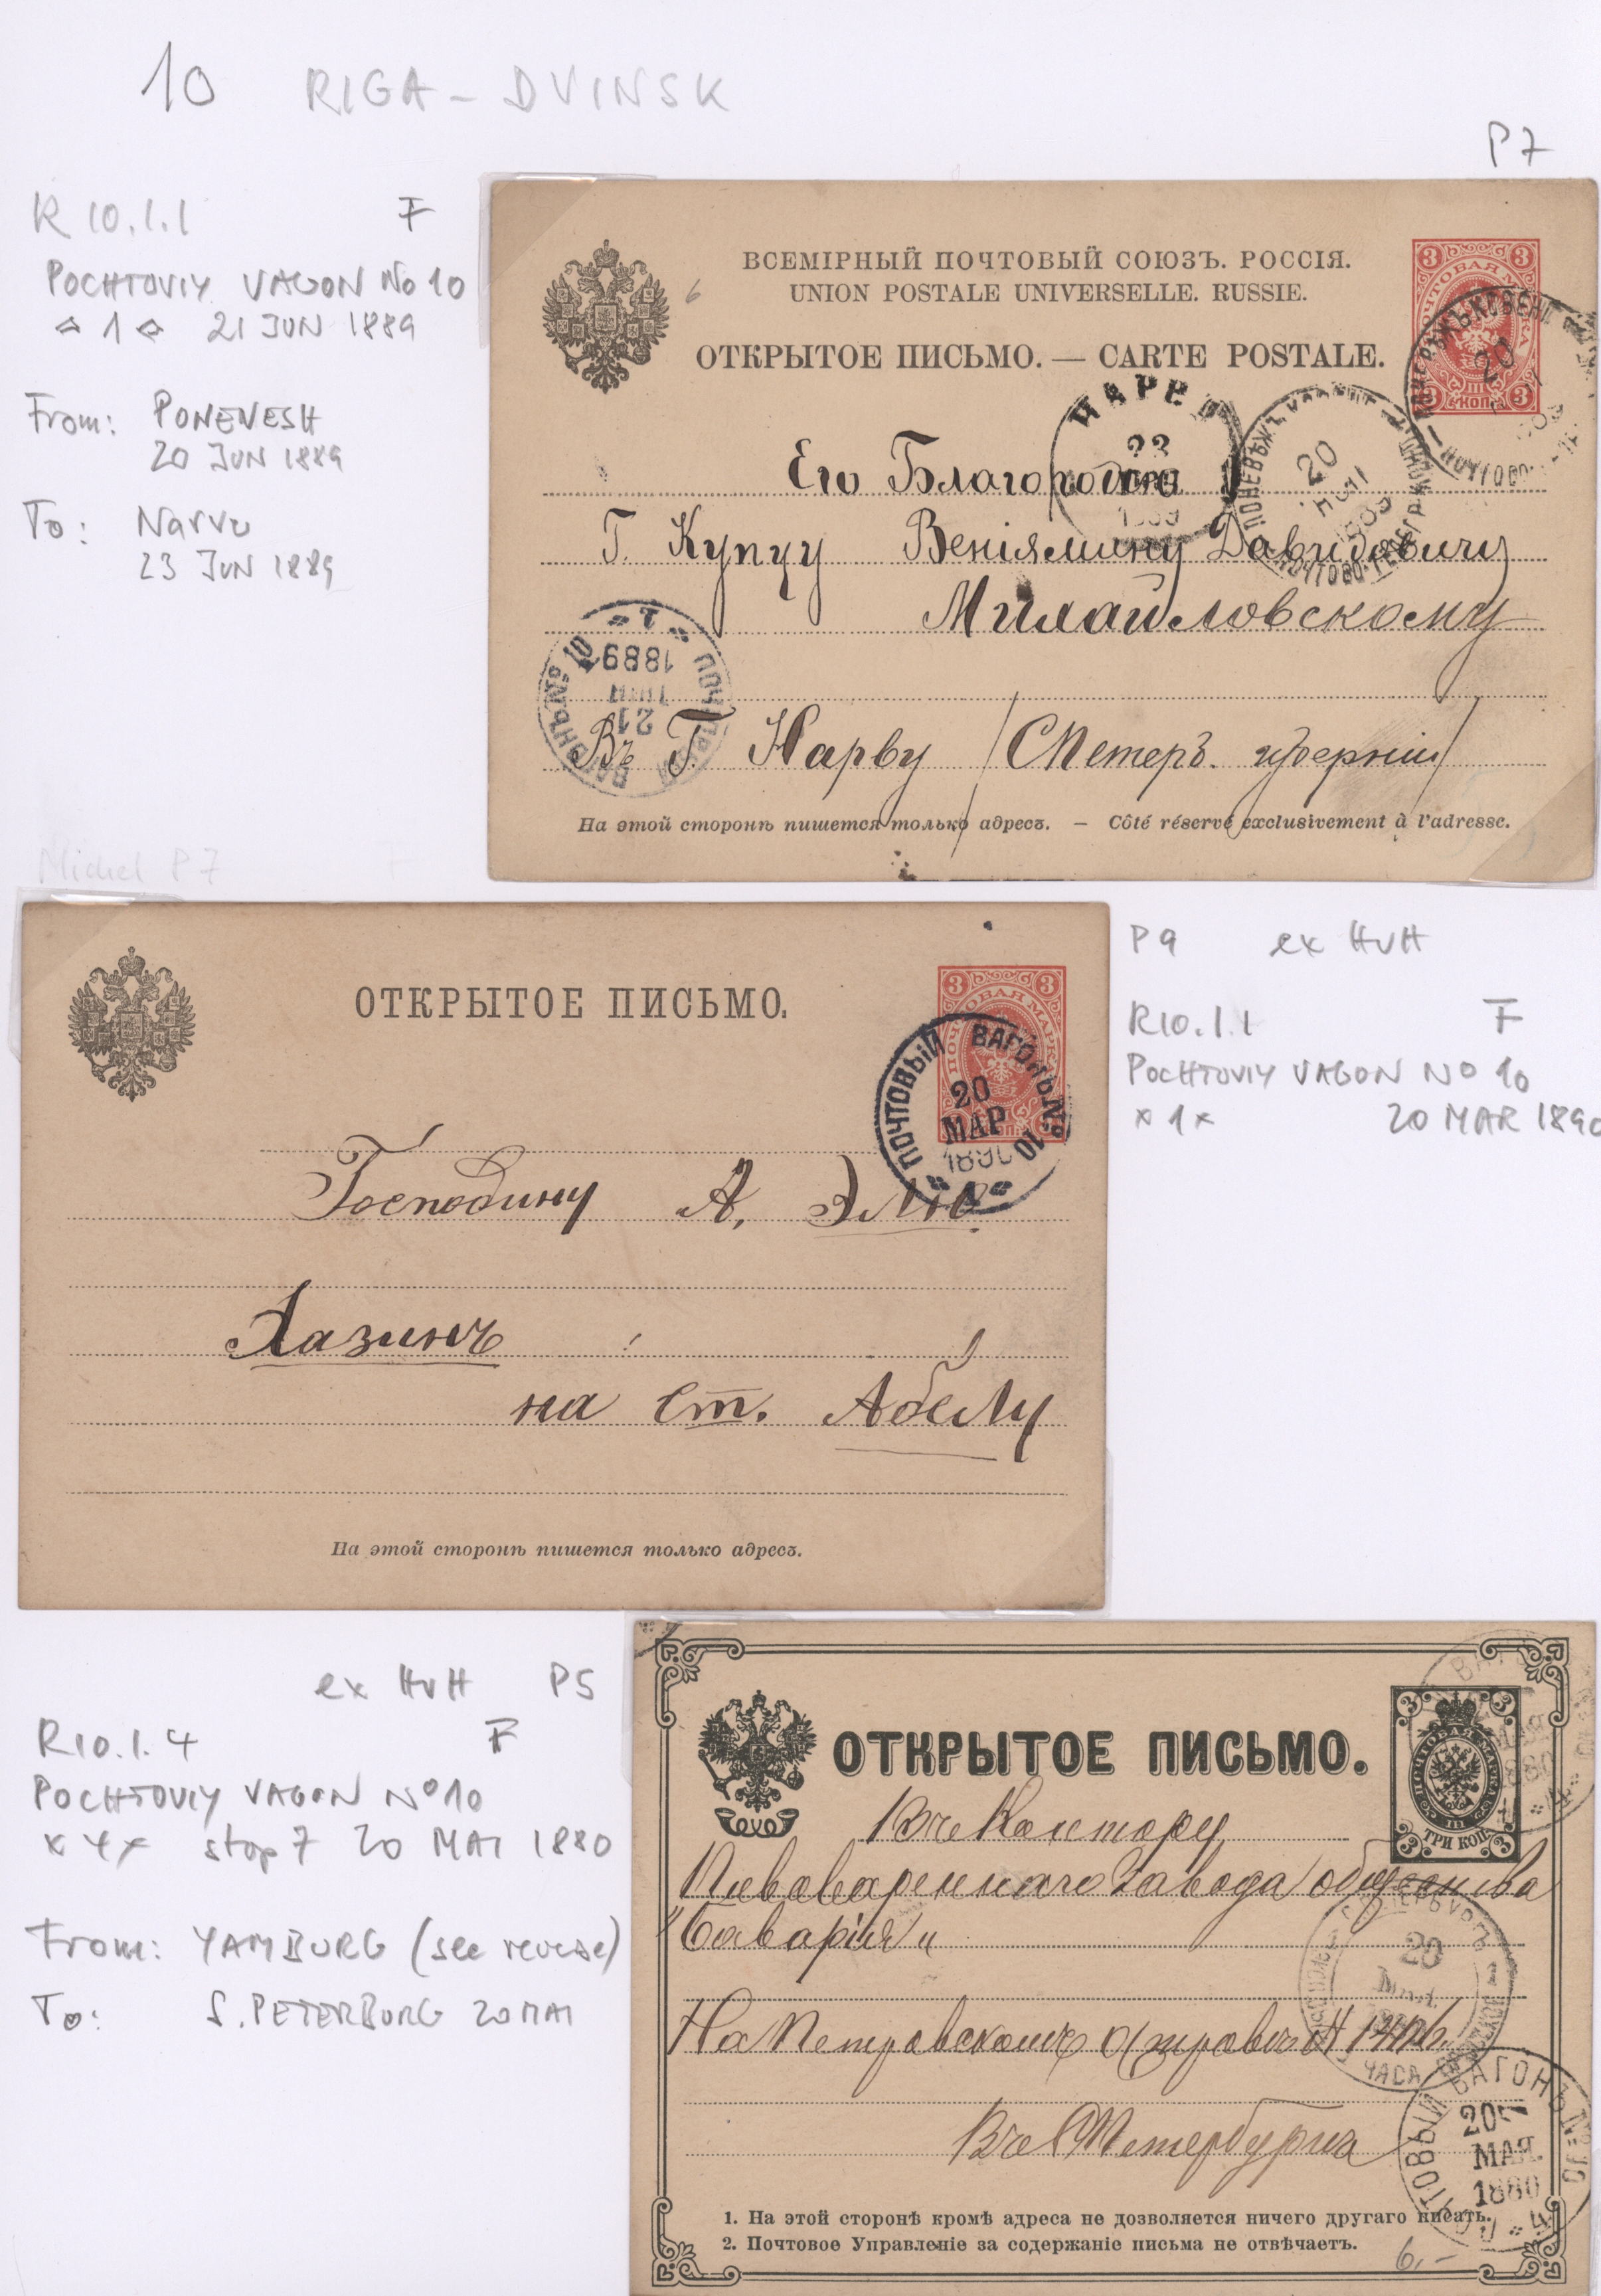 10 RIGA – DVINSK
P7
R 10.1.1 F
POCHTOVIY VAGON No 10
1 21 JUN 1889
From: PONEVESH
20 JUN 1889
To: Narva
23 JUN 1889
Michel P7
6
ВСЕМІРНЫЙ ПОЧТОВЫЙ СОЮЗЪ. РОССІЯ.
UNION POSTALE UNIVERSELLE. RUSSIE.
ОТКРЫТОЕ ПИСЬМО. — CARTE POSTALE.
3 3
3 КОП. 3
20
НАРВА
23
1889
ПОНЕВѢЖЪ
20
ІЮН
1889
Его Благородію
Г. Купцу Веніямину Давидовичу
Милайловскому
ПОЧТОВЫЙ ВАГОНЪ № 10
21
ІЮН
1889
1
Въ Г. Нарву (СПетерб. губерніи)
На этой сторонѣ пишется только адресъ. — Côté réservé exclusivement à l'adresse.
P9 ex HvH
R10.1.1 F
POCHTOVIY VAGON No 10
x 1 x 20 MAR 1890
ОТКРЫТОЕ ПИСЬМО.
3 3
ПОЧТОВАЯ МАРКА
ПОЧТОВЫЙ ВАГОНЪ № 10
20
МАР
1890
1
Господину А.
Хазинъ
на ст. Абелу
На этой сторонѣ пишется только адресъ.
ex HvH P5
R10.1.4 F
POCHTOVIY VAGON No 10
x 4 x stop 7 20 MAI 1880
From: YAMBURG (see reverse)
To: S. PETERBURG 20 MAI
ОТКРЫТОЕ ПИСЬМО.
3 3
ПОЧТОВАЯ МАРКА
III
3 ТРИ КОП. 3
Въ Контору
Пивовареннаго Завода общества
"Баварія"
20
ЧАСА
На Петровскомъ островѣ
Въ СПетербургѣ
ПОЧТОВЫЙ ВАГОНЪ № 10
20
МАЯ.
1880
4
1. На этой сторонѣ кромѣ адреса не дозволяется ничего другаго писать.
2. Почтовое Управленіе за содержаніе письма не отвѣчаетъ.
6,-